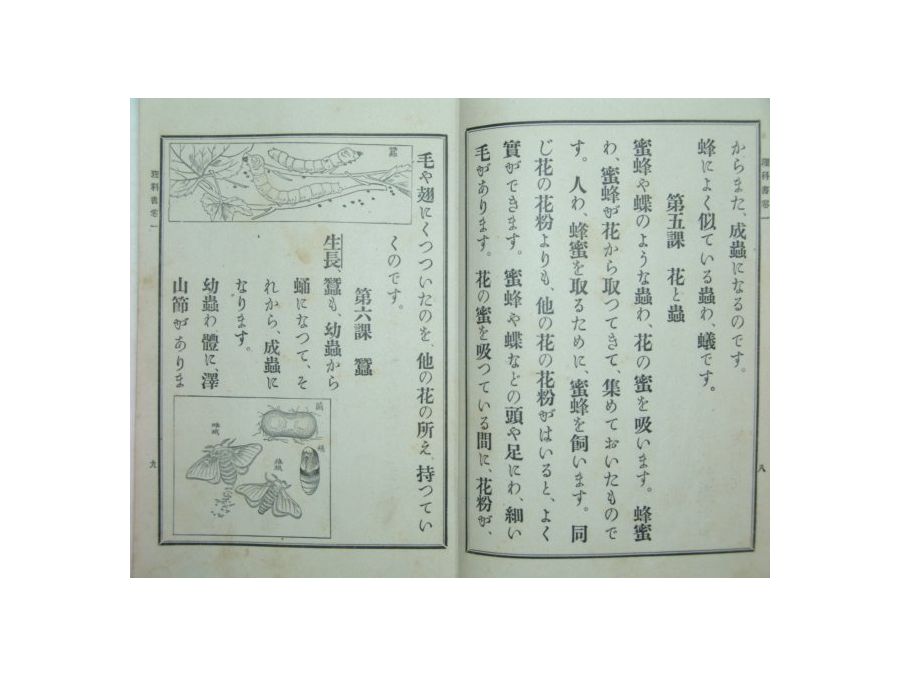 理科書卷一
からまた、成蟲になるのです。
蜂によく似ている蟲わ、蟻です。
第五課 花と蟲
蜜蜂や蝶のような蟲わ、花の蜜を吸います。蜂蜜
わ、蜜蜂が花から取つてきて、集めておいたもので
す。人わ、蜂蜜を取るために、蜜蜂を飼います。同
じ花の花粉よりも、他の花の花粉がはいると、よく
實ができます。蜜蜂や蝶などの頭や足にわ、細い
毛があります。花の蜜を吸つている間に、花粉が、
八
毛や翅にくつついたのを、他の花の所え、持つてい
くのです。
第六課 蠶
生長、蠶も、幼蟲から
蛹になつて、そ
れから、成蟲に
なります。
幼蟲わ體に、澤
山節がありま
蠶
繭
蛹
雌蛾
雄蛾
理科書卷一
九